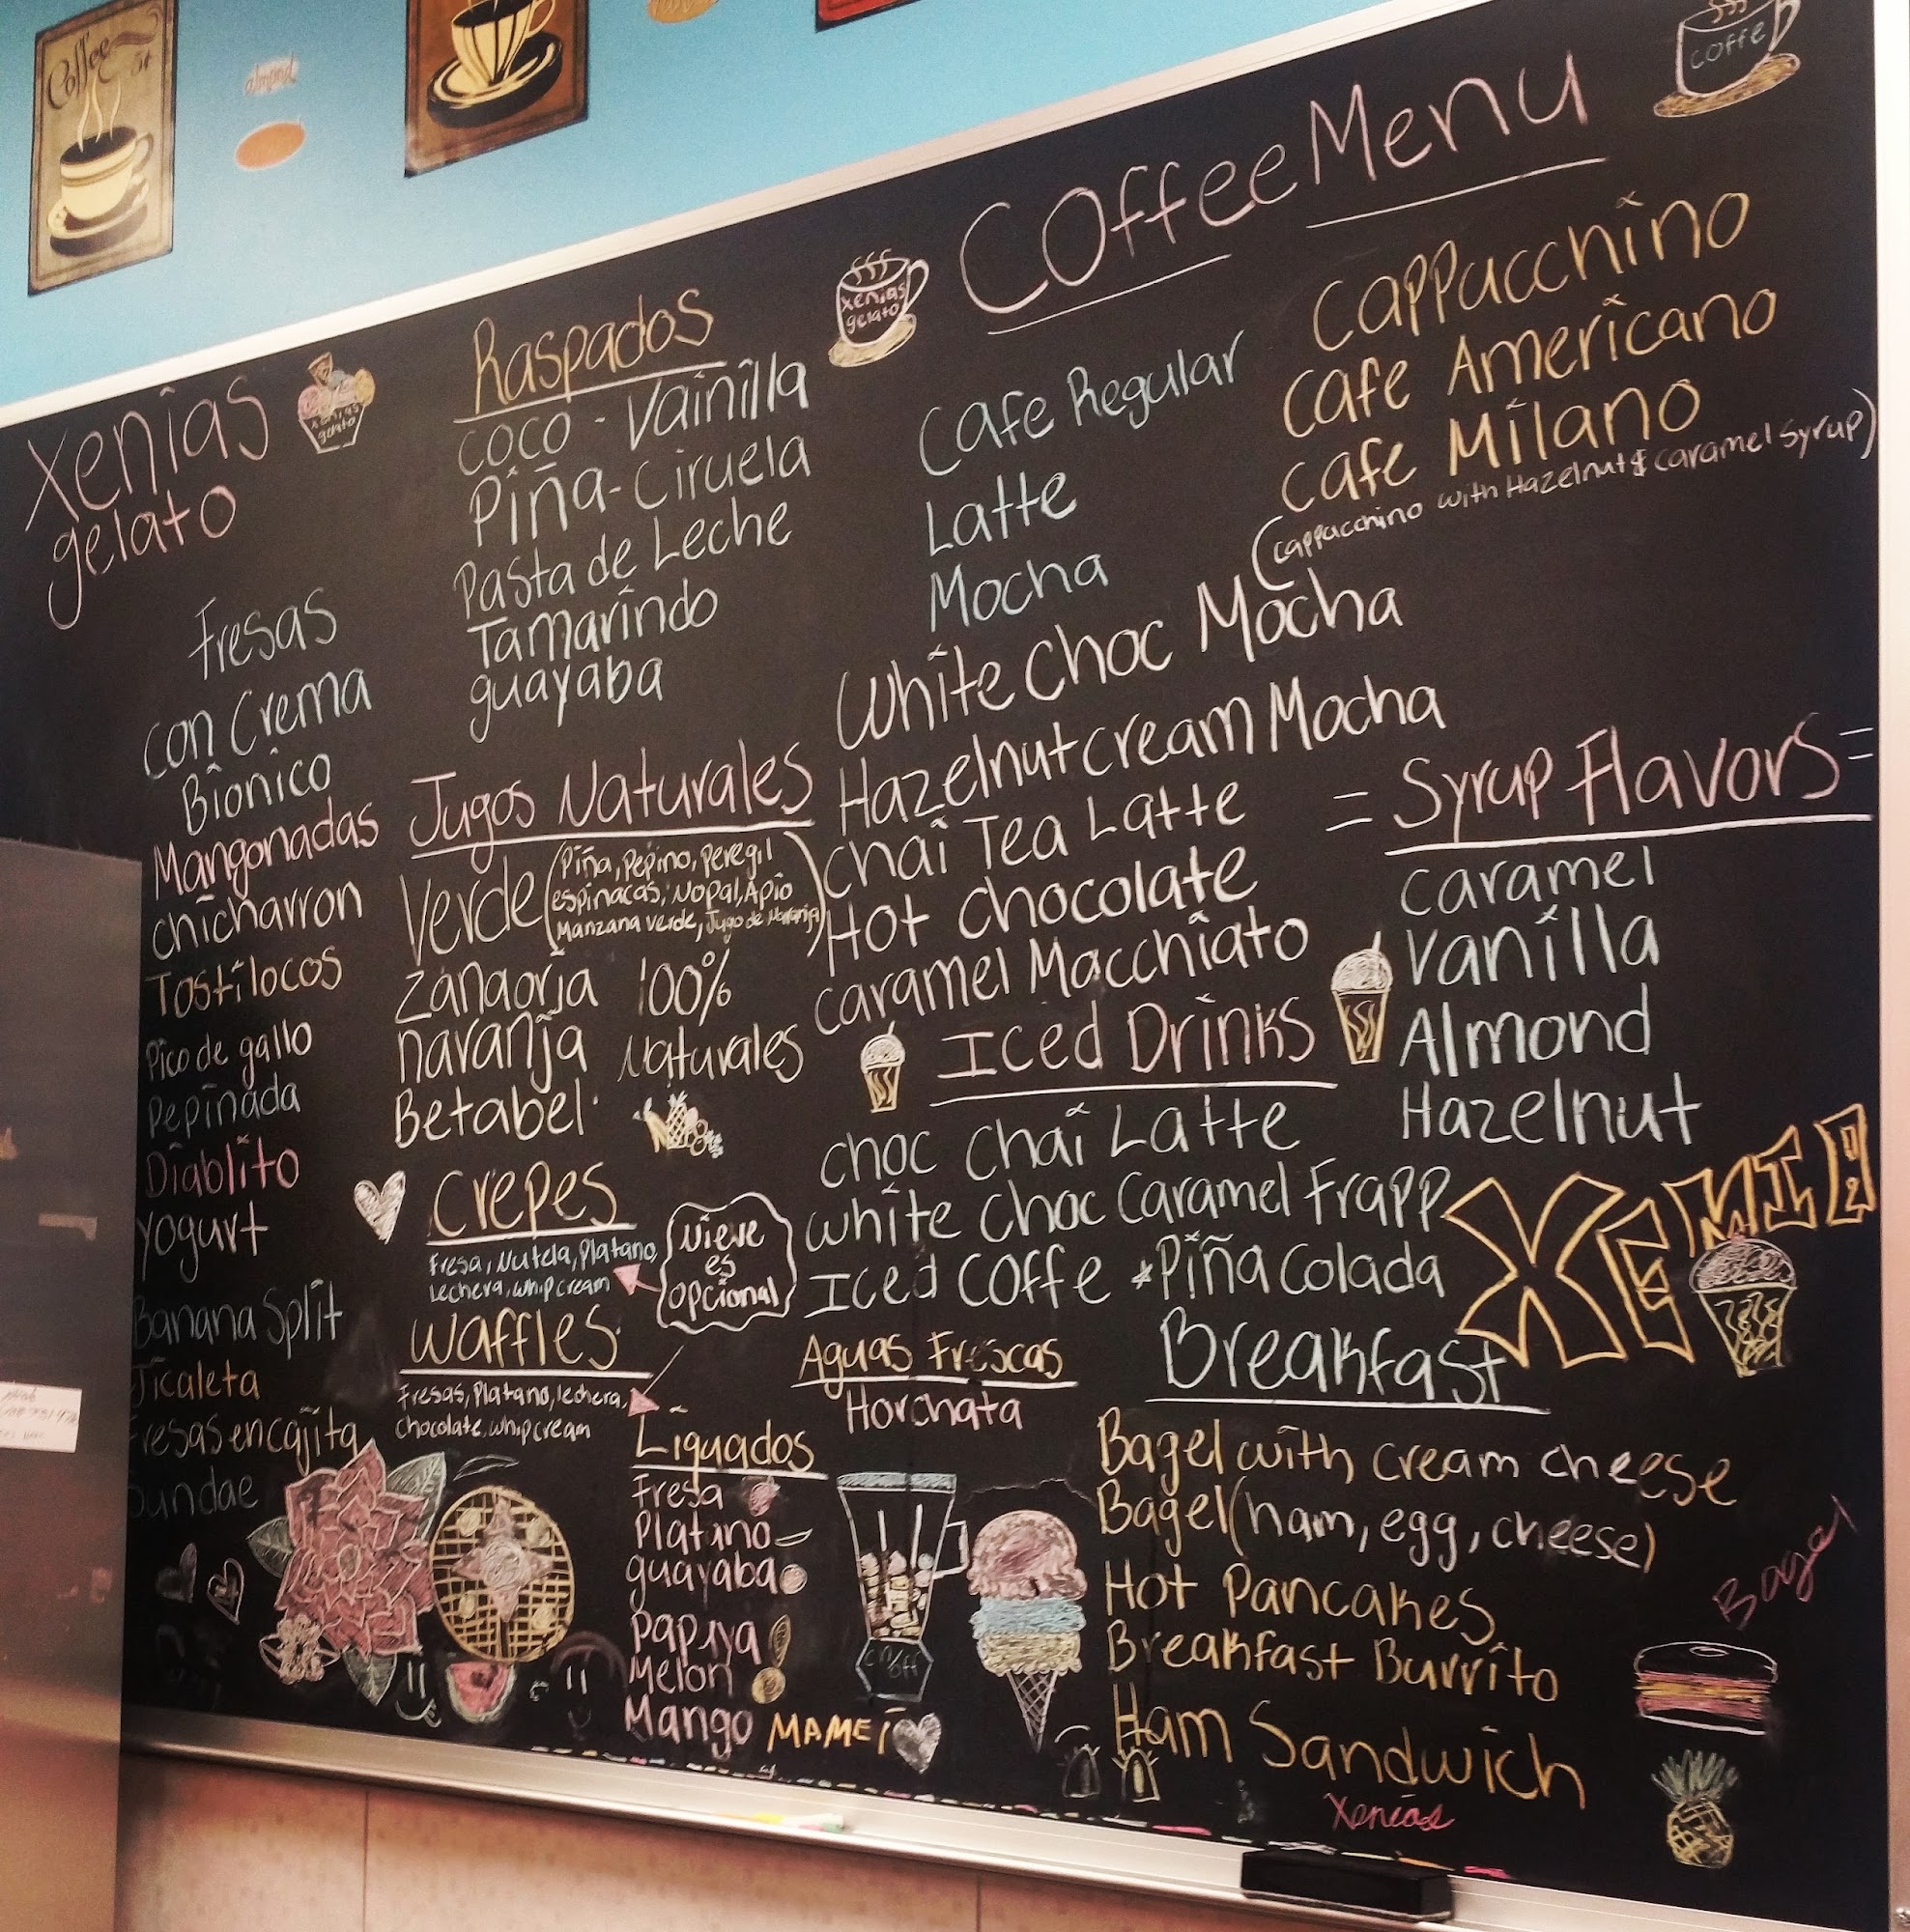 Coffee
almond
Coffee Menu
coffe
xenias
gelato
Xenias
gelato
Fresas
con Crema
Bionico
Mangonadas
chicharron
Tostilocos
Pico de gallo
Pepinada
Diablito
Yogurt
Banana Split
Jicaleta
Fresas encajita
Sundae
Raspados
coco - Vainilla
Piña - Ciruela
Pasta de Leche
Tamarindo
guayaba
Jugos Naturales
Verde (Piña, Pepino, Peregil
espinacas, Nopal, Apio
Manzana verde, Jugo de Naranja)
Zanaorja 100%
naranja Naturales
Betabel
Crepes
Fresa, Nutela, Platano,
Lechera, whip cream
Nieve
es
opcional
Waffles
Fresas, Platano, lechera,
chocolate, whip cream
Liguados
Fresa
Platino
guayaba
Papaya
Melon
Mango MAMEI
on/off
Cafe Regular
Latte
Mocha
Cappucchino
Cafe Americano
Cafe Milano
(Cappucchino with Hazelnut & caramel syrup)
White Choc Mocha
Hazelnut cream Mocha
Chai Tea Latte
Hot chocolate
caramel Macchiato
= Syrup Flavors =
caramel
vanilla
Almond
Hazelnut
Iced Drinks
choc Chai Latte
white choc Caramel Frapp
Iced Coffe *Piña Colada
XEMIA
Aguas Frescas
Horchata
Breakfast
Bagel with cream cheese
Bagel (ham, egg, cheese)
Hot Pancakes
Breakfast Burrito
Ham Sandwich
Bagel
Xenias